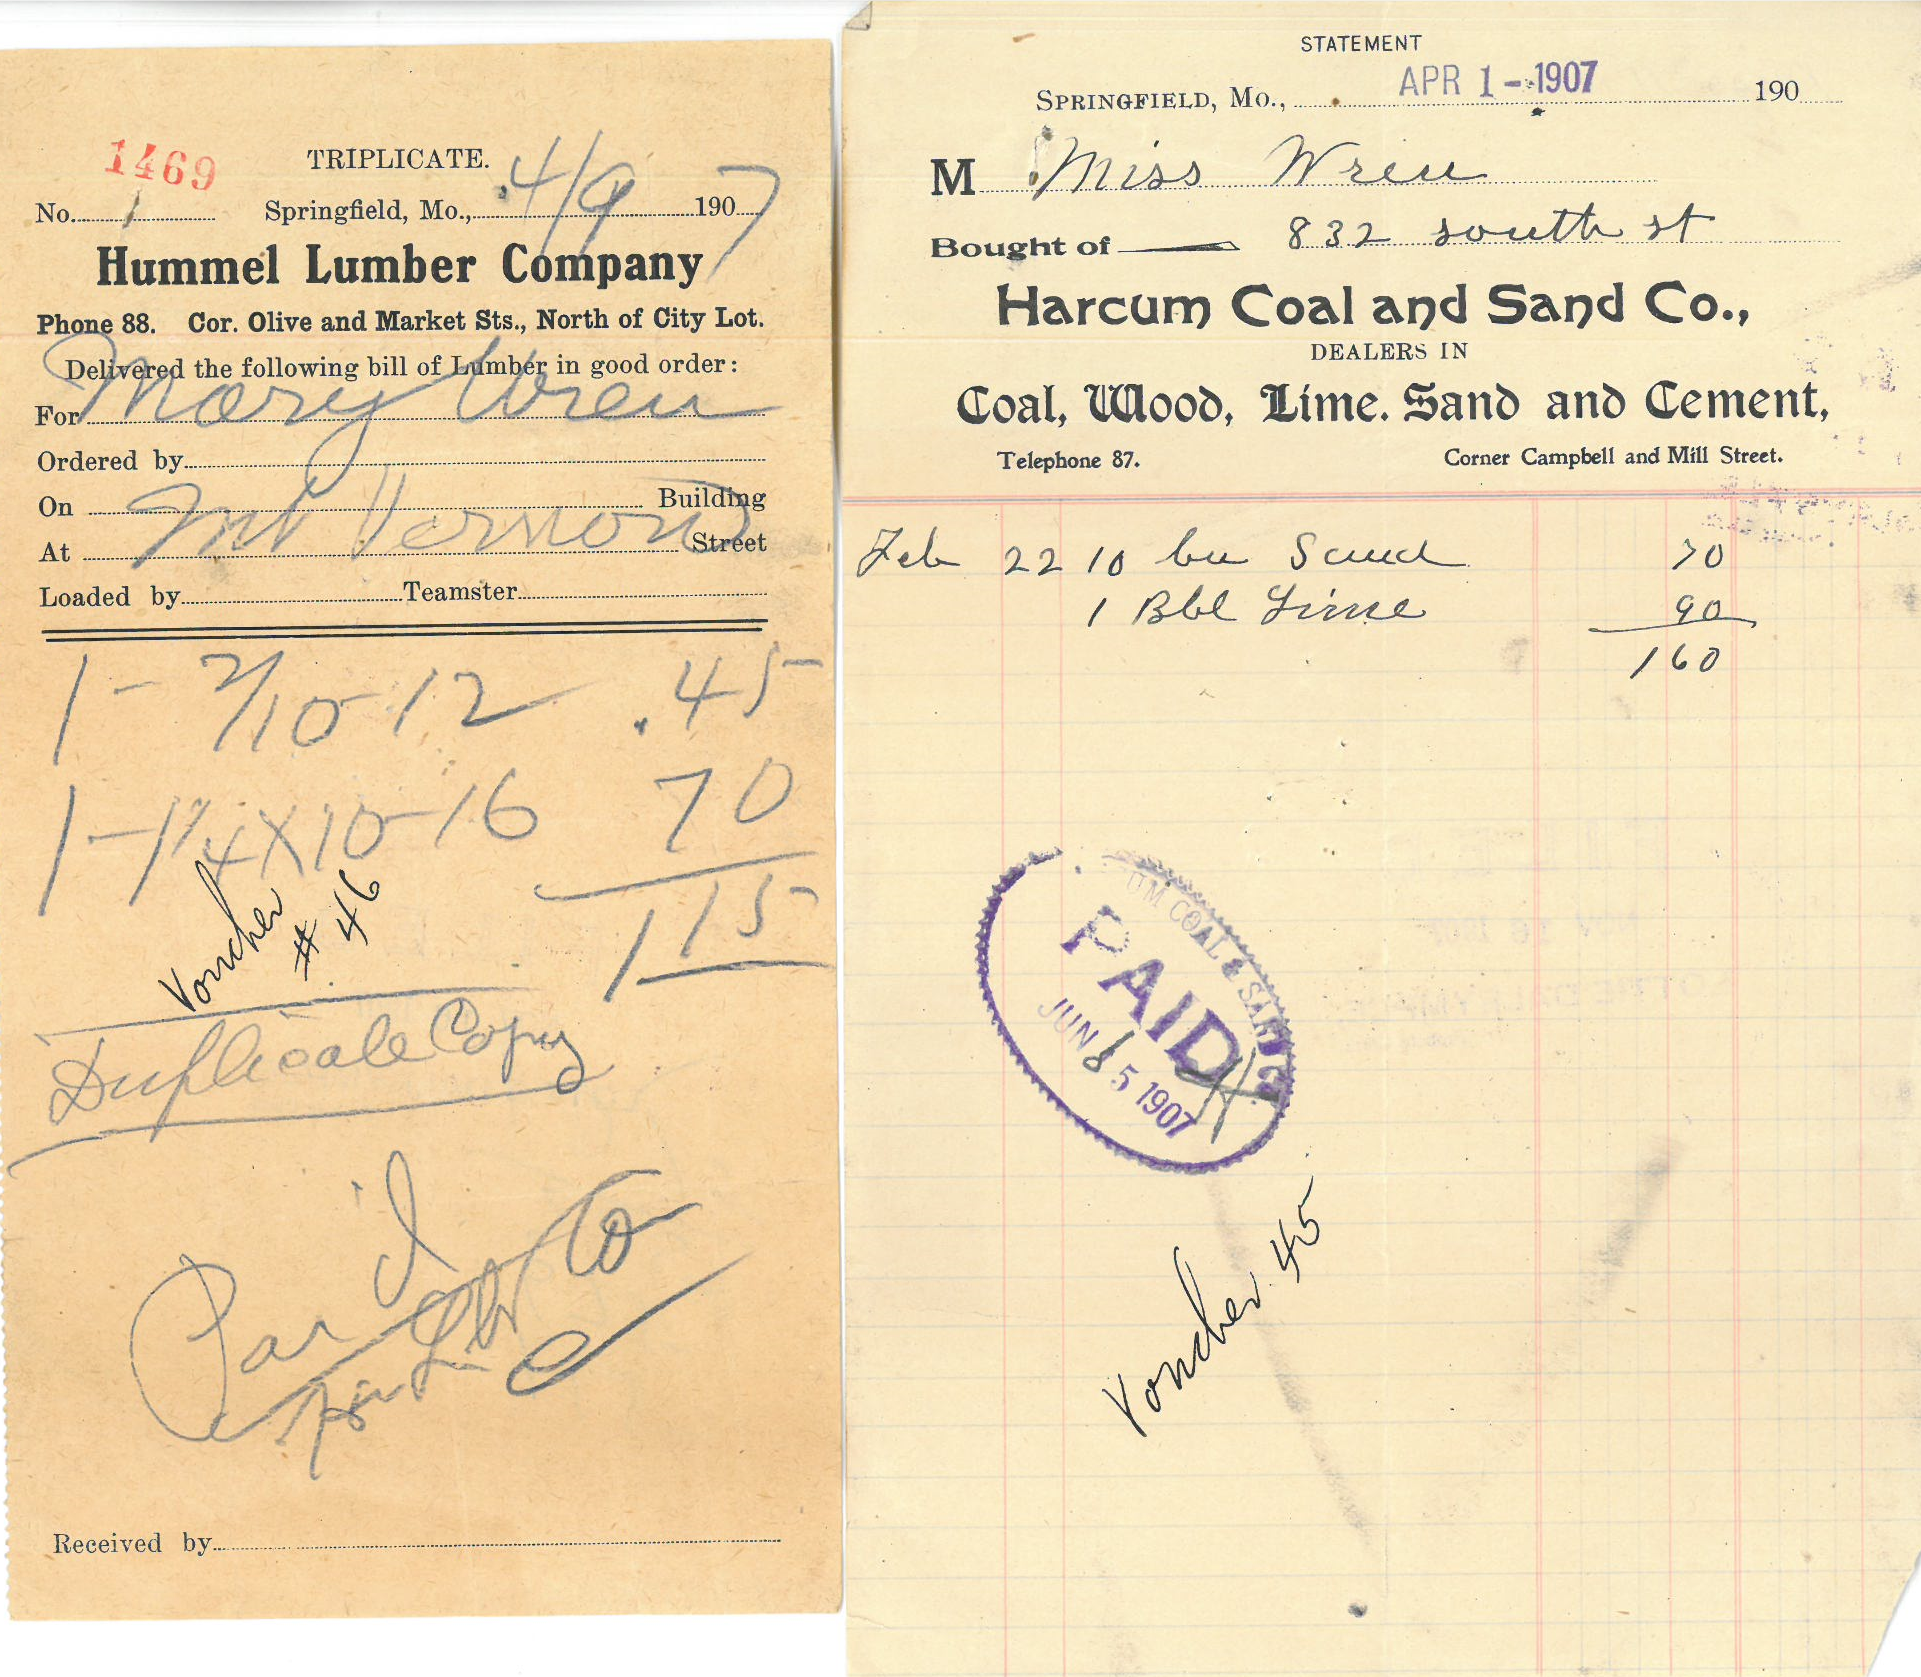 1469
TRIPLICATE.
No. 1 Springfield, Mo., 4/9 1907
Hummel Lumber Company
Phone 88. Cor. Olive and Market Sts., North of City Lot.
Delivered the following bill of Lumber in good order:
For Mary Wren
Ordered by
On Building
Mt Vernon
At Street
Loaded by Teamster
1 - 2/10 - 12 .45
1 - 1 1/4 X 10 - 16 70
115
Voucher
# 46
Duplicate Copy
Paid
Received by
STATEMENT
SPRINGFIELD, MO., APR 1 - 1907 190
M Miss Wren
Bought of 832 south st
Harcum Coal and Sand Co.,
DEALERS IN
Coal, Wood, Lime. Sand and Cement,
Telephone 87. Corner Campbell and Mill Street.
Feb 22 10 bu Sand 70
1 Bbl Lime 90
160
UM COAL & SAND CO
PAID
JUN 5 1907
Voucher 45